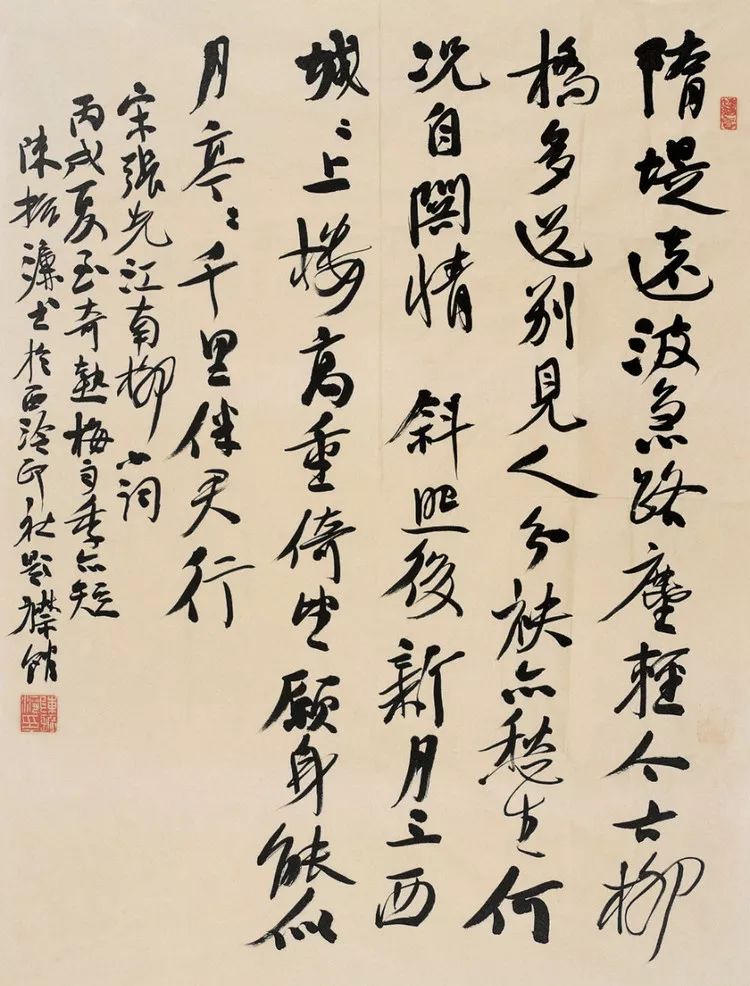 隋堤遠波急路塵輕今古柳
橋多送别見人分袂亦愁生何
况自關情 斜照後新月上西
城〻上楼高重倚望願身能似
月亭〻千里伴君行
宋張先江南柳小詞
丙戌夏至奇熱梅雨季亦短
陳振濂书於西泠印社題襟館